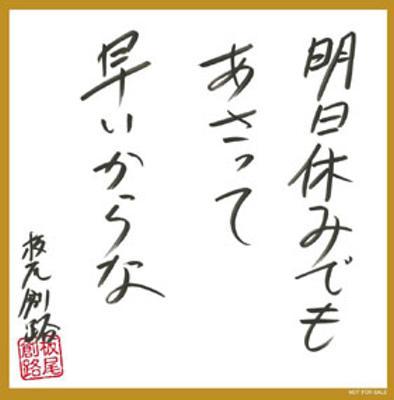 明日休みでも
あさって
早いからな
板尾創路
板尾
創路
NOT FOR SALE